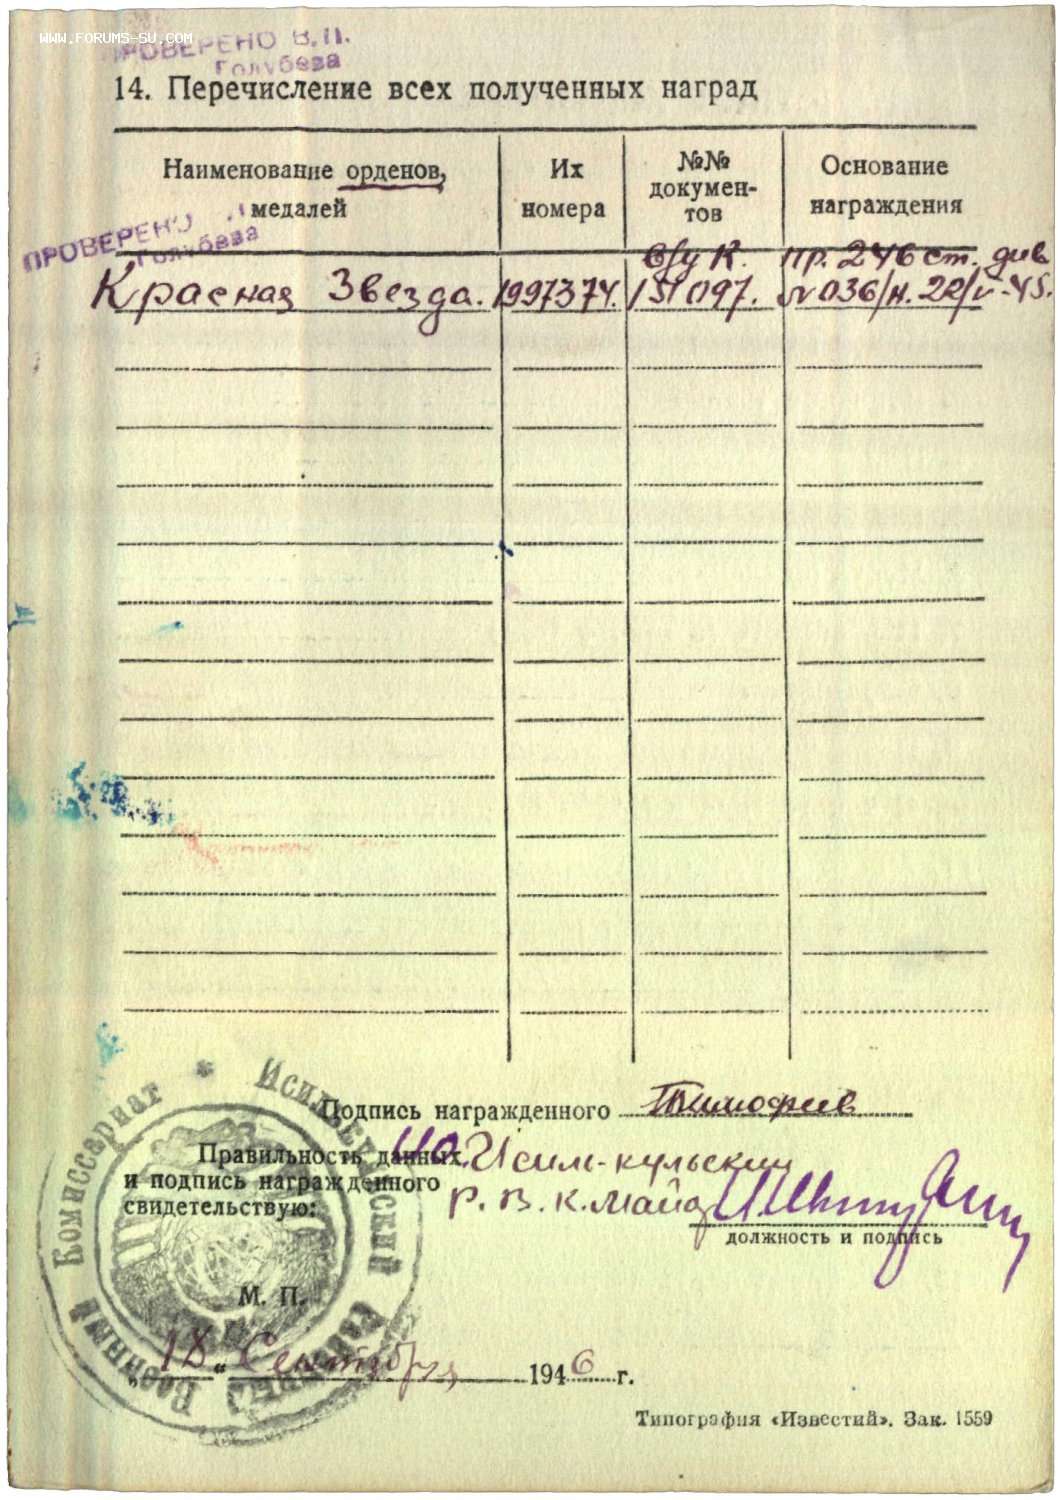 www.forums-su.com
ПРОВЕРЕНО В.П.
Голубева
14. Перечисление всех полученных наград
Наименование орденов, медалей
Их номера
№№ докумен-
тов
Основание награждения
ПРОВЕРЕНО
Голубева
б/у К. пр. 246 ст. див
Красная Звезда. 1997374. 151097. № 036/н. 22/V-45.
Подпись награжденного Тимофеев
Правильность данных
и подпись награжденного
свидетельствую:
Исиль-кульский
Р. В. К. Майор
должность и подпись
М. П.
„18“ Сентября 1946 г.
Исилькульский Районный Военный Комиссариат
Типография «Известий». Зак. 1559